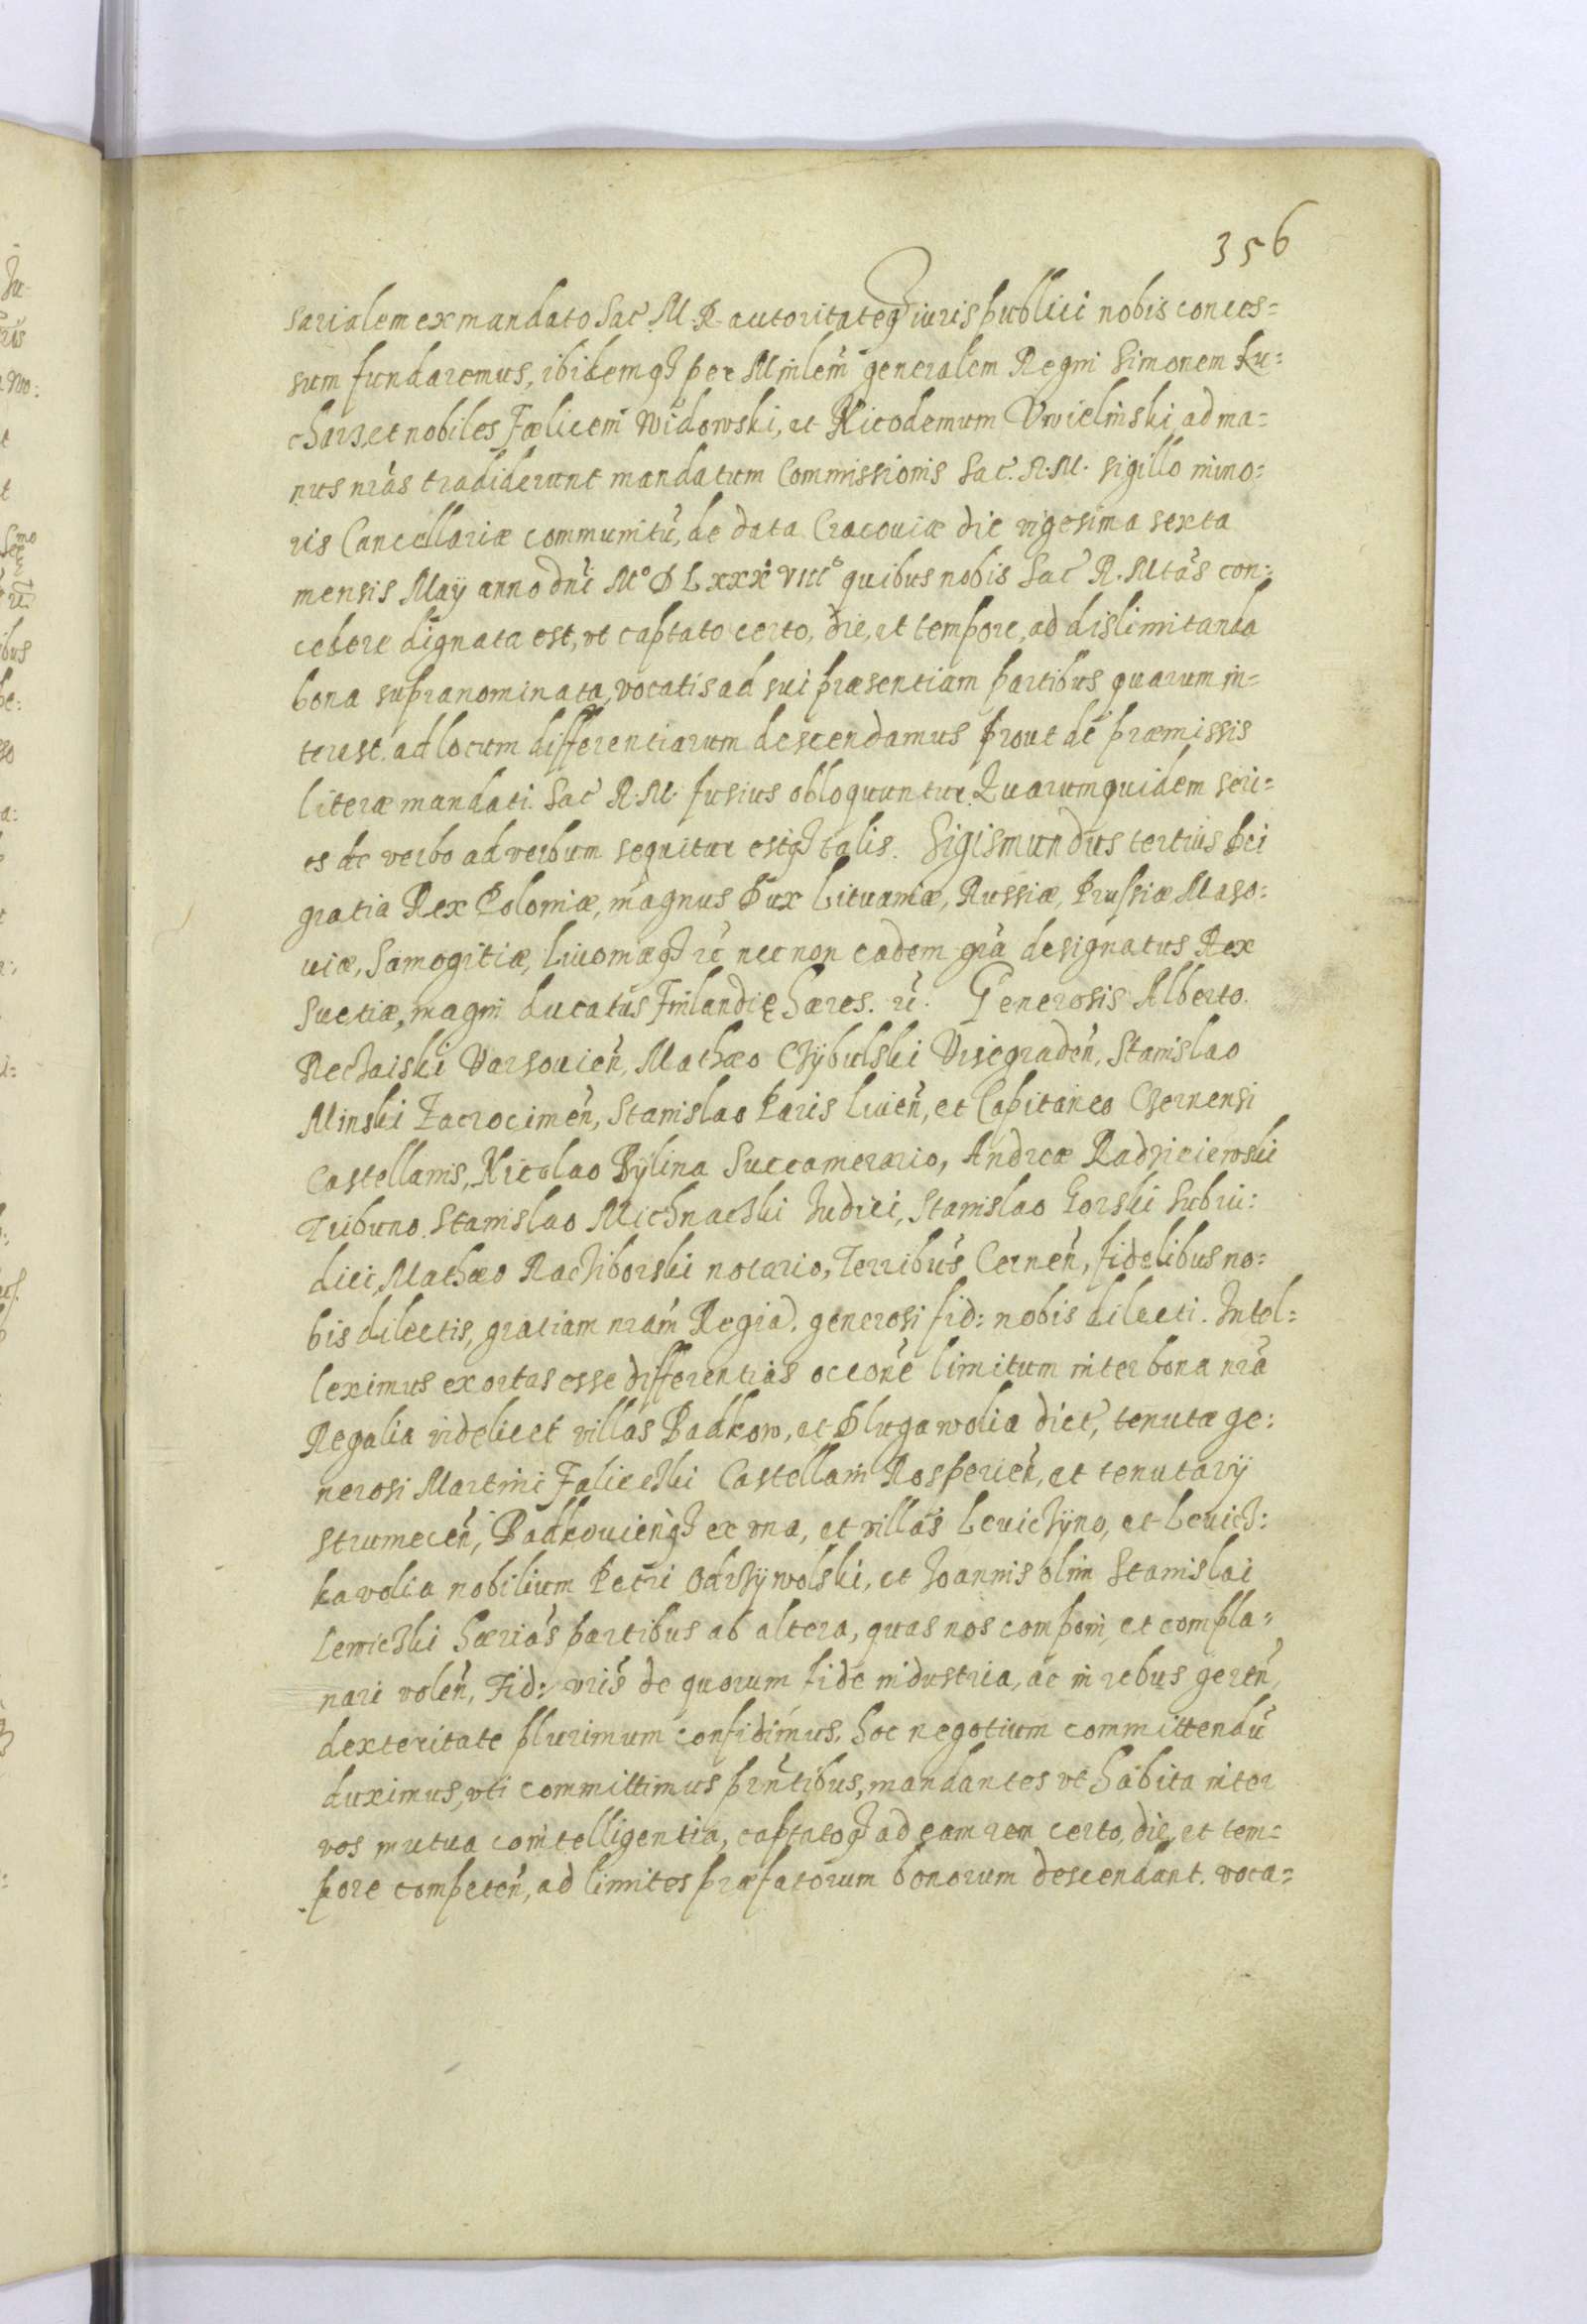 356
sarialem ex mandato Sac̃ M. R. autoritateq₃ iuris publici nobis conces=
sum fundaremus, ibidemq₃ per Minlem̃ generalem Regni Simonem Ku=
charz, et nobiles Fælicem Widowski, et Nicodemum Uwielinski, ad ma=
nus nr̃as tradiderunt mandatum Commissionis Sac. R. M. sigillo mino=
ris Cancellariæ communitũ, de data Cracouiæ die vigesima sexta
mensis Maÿ anno dnĩ M° D Lxxx° VIII° quibus nobis Sac̃ R. Mtãs con=
cedere dignata est, vt captato certo, die, et tempore, ad dislimitanda
bona supranominata, vocatis ad sui præsentiam partibus quarum in=
terest, ad locum differentiarum descendamus prout de præmissis
literæ mandati Sac̃ R. M. fusius obloquuntur. Quarum quidem seri=
es de verbo ad verbum sequitur estq₃ talis. Sigismundus tertius Dei
gratia Rex Poloniæ, magnus Dux Lituaniæ, Russiæ, Prussiæ Maso=
uiæ, Samogitiæ, Liuoniæq₃ rc̃ nec non eadem grã designatus Rex
Suetiæ, magni ducatus Finlandię hæres. rc̃. Generosis Alberto
Rechaiski Varsouień, Mathæo Chÿbulski Visegradeń, Stanislao
Minski Zacrocimeń, Stanislao Paris Liuień, et Capitaneo Chernensi
Castellanis, Nicolao Bÿlina Succamerario, Andreæ Radzieiewski
Tribuno. Stanislao Michnachki Iudici, Stanislao Gorski Subiu=
dici, Mathæo Rachiborski notario, Terribus Cerneń, fidelibus no=
bis dilectis, gratiam nrãm Regiã. generosi fid: nobis dilecti. Intel=
leximus exortas esse differentias occone limitum inter bona nrã
Regalia videlicet villas Badkow, et Dluga wolia dict, tenutæ ge=
nerosi Martini Falicchki Castellani Rosperień, et tenutarÿ
Strumeceń, Badkouieńq₃ ex vna, et villas Leuichÿno, et Leuich=
ka volia nobilium Petri Odrzÿwolski, et Ioannis olim Stanislai
Lewichki hærias partibus ab altera, quas nos componi, et compla=
nari voleń, Fid: vris de quorum fide industria, ac in rebus gereń,
dexteritate plurimum confidimus, hoc negotium committendũ
duximus, vti committimus prñtibus, mandantes vt habita inter
vos mutua cointelligentia, captatoq₃ ad eam rem certo, die, et tem=
pore competeń, ad limites præfatorum bonorum descendant. voca=